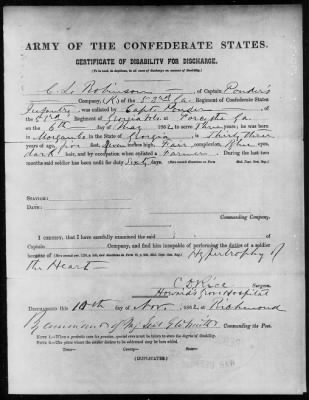 ARMY OF THE CONFEDERATE STATES.
CERTIFICATE OF DISABILITY FOR DISCHARGE.
(To be used, in duplicate, in all cases of discharge on account of disability.)
C. L. Robinson of Captain Ponder's
Company, (K) of the 53rd Ga. Regiment of Confederate States
Infantry, was enlisted by Capt. Ponder of
the 53rd Regiment of Georgia Vols. at Forsythe Ga.
on the 6th day of May 1862, to serve Three years; he was born
in Morgan Co. in the State of Georgia is Thirty three
years of age, five feet, seven inches high, Fair complexion, Blue eyes,
dark hair, and by occupation when enlisted a Farmer. During the last two
months said soldier has been unfit for duty Sixty days.
STATION:
DATE:
Commanding Company.
I CERTIFY, that I have carefully examined the said
Captain Company, and find him incapable of performing the duties of a soldier
because of Hypertrophy of
the Heart
C D Rice Surgeon.
Howard's Grove Hospital
DISCHARGED this 10th day of Nov. 1862, at Richmond
By command of Commanding the Post.
NOTE 1.—When a probable case for pension, special care must be taken to state the degree of disability.
NOTE 2.—The place where the soldier desires to be addressed may be here added.
Town: County: State:
(DUPLICATES.)